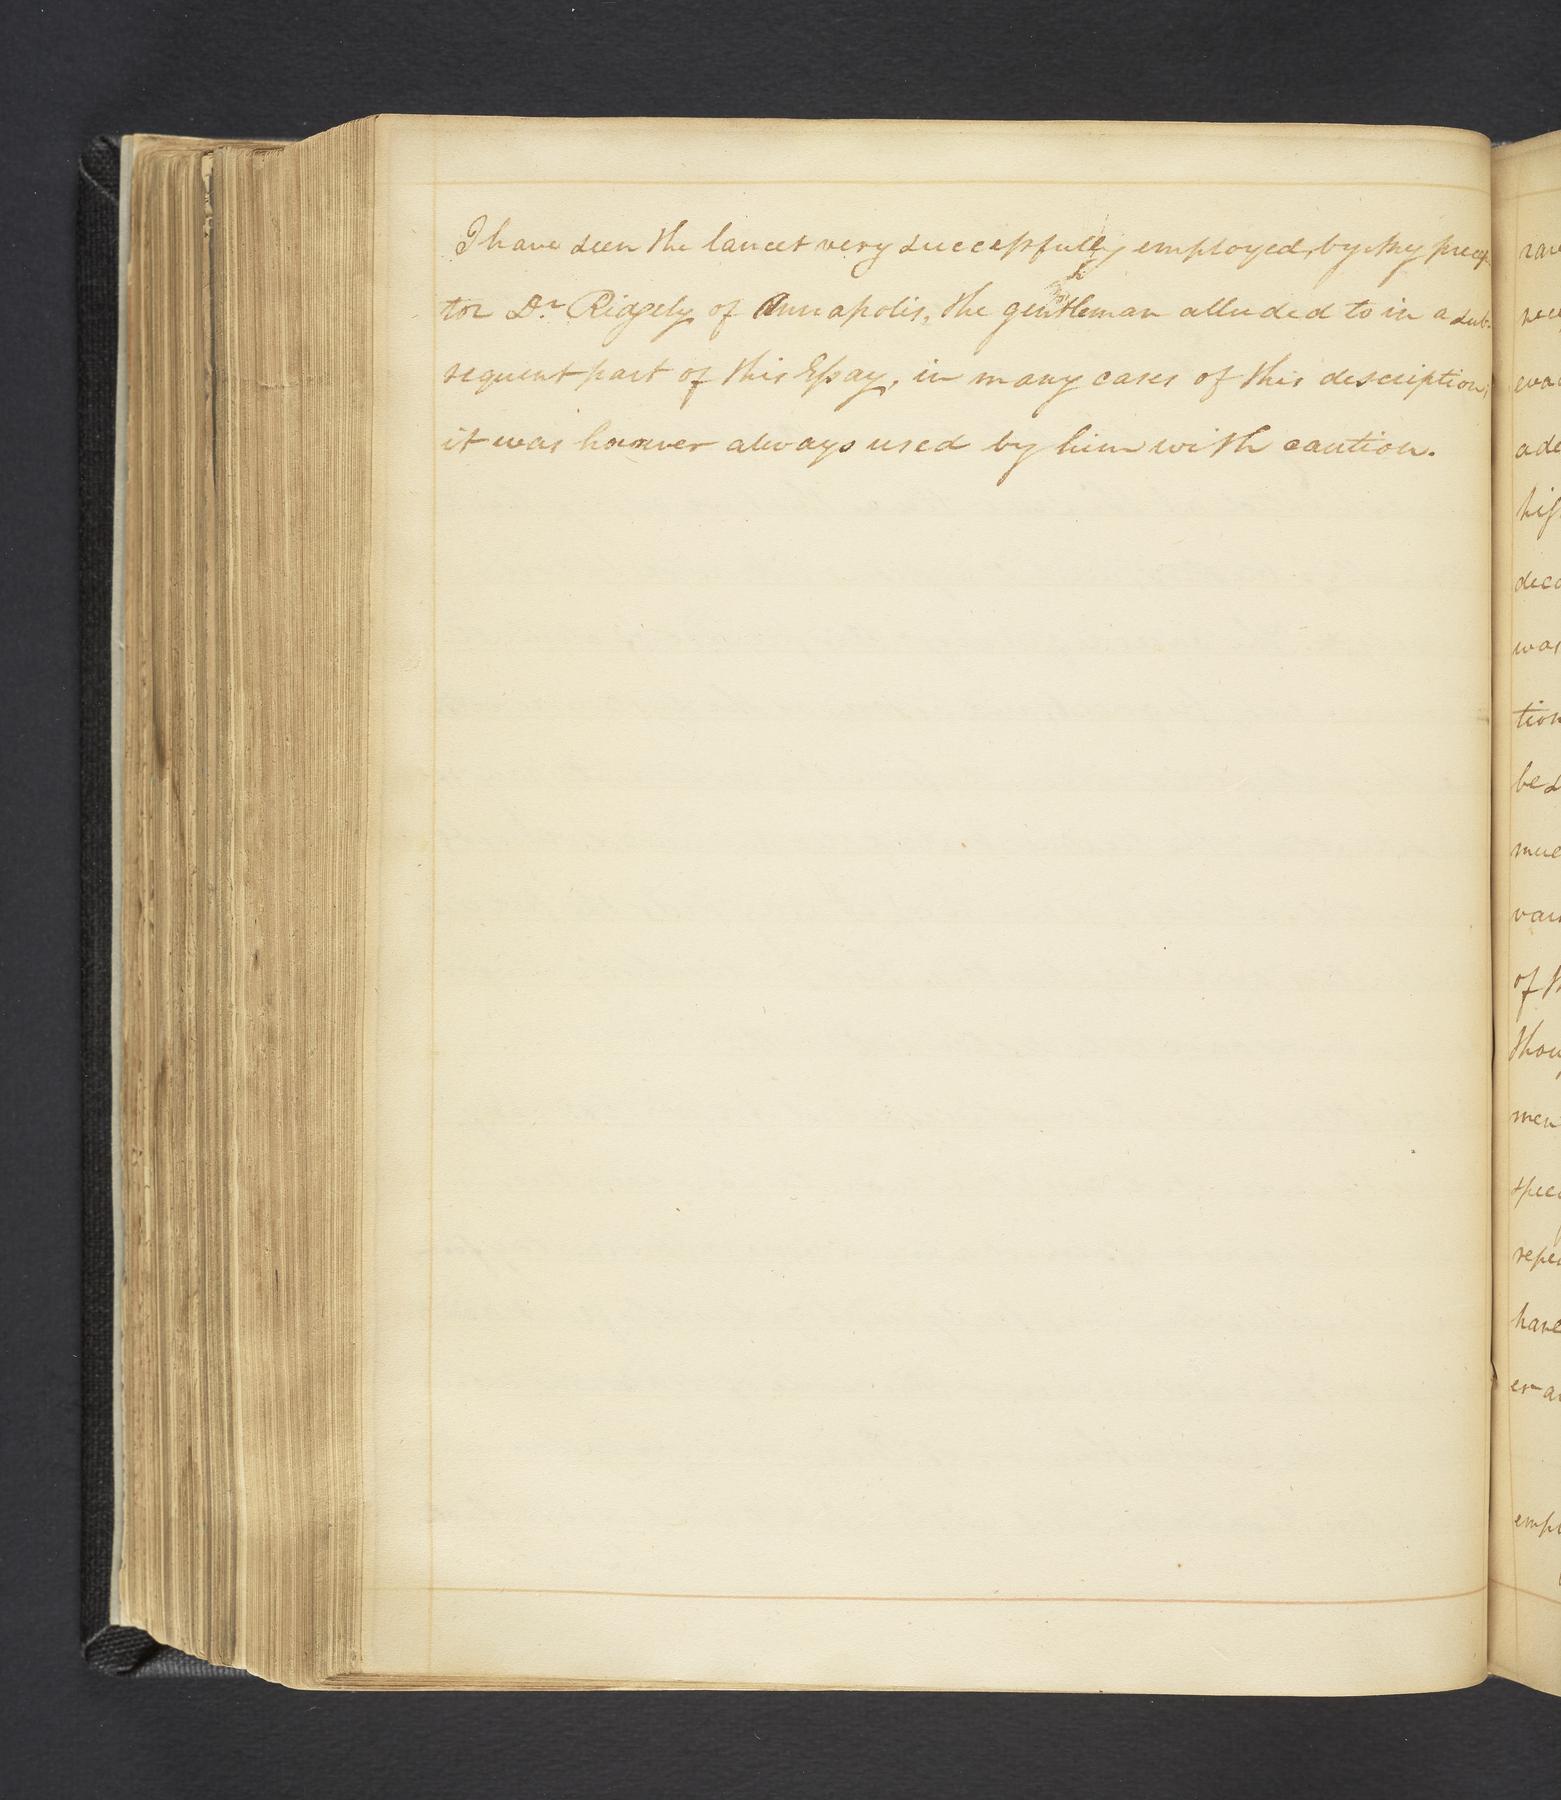 I have seen the lancet very successfully employed, by my precep-
tor Dr. Ridgely of Annapolis, the gentleman alluded to in a sub-
sequent part of this Essay, in many cases of this description,
it was however always used by him with caution.
rare
nece
evac
ade
hiss
deco
was
tion
be s
muc
vari
of th
thou
men
spec
repe
have
er a
empl